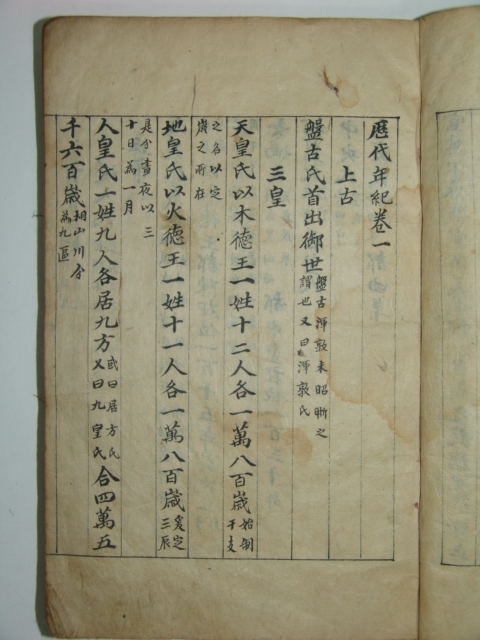 厯代年紀卷一
上古
盤古氏首出御世盤古渾敦未昭晰之謂也又曰渾敦氏
三皇
天皇氏以木德王一姓十二人各一萬八百歲始制干支
之名以定歲之所在
地皇氏以火德王一姓十一人各一萬八百歲爰定三辰
是分晝夜以三十日為一月
人皇氏一姓九人各居九方或曰居方氏又曰九皇氏合四萬五
千六百歲相山川分為九區